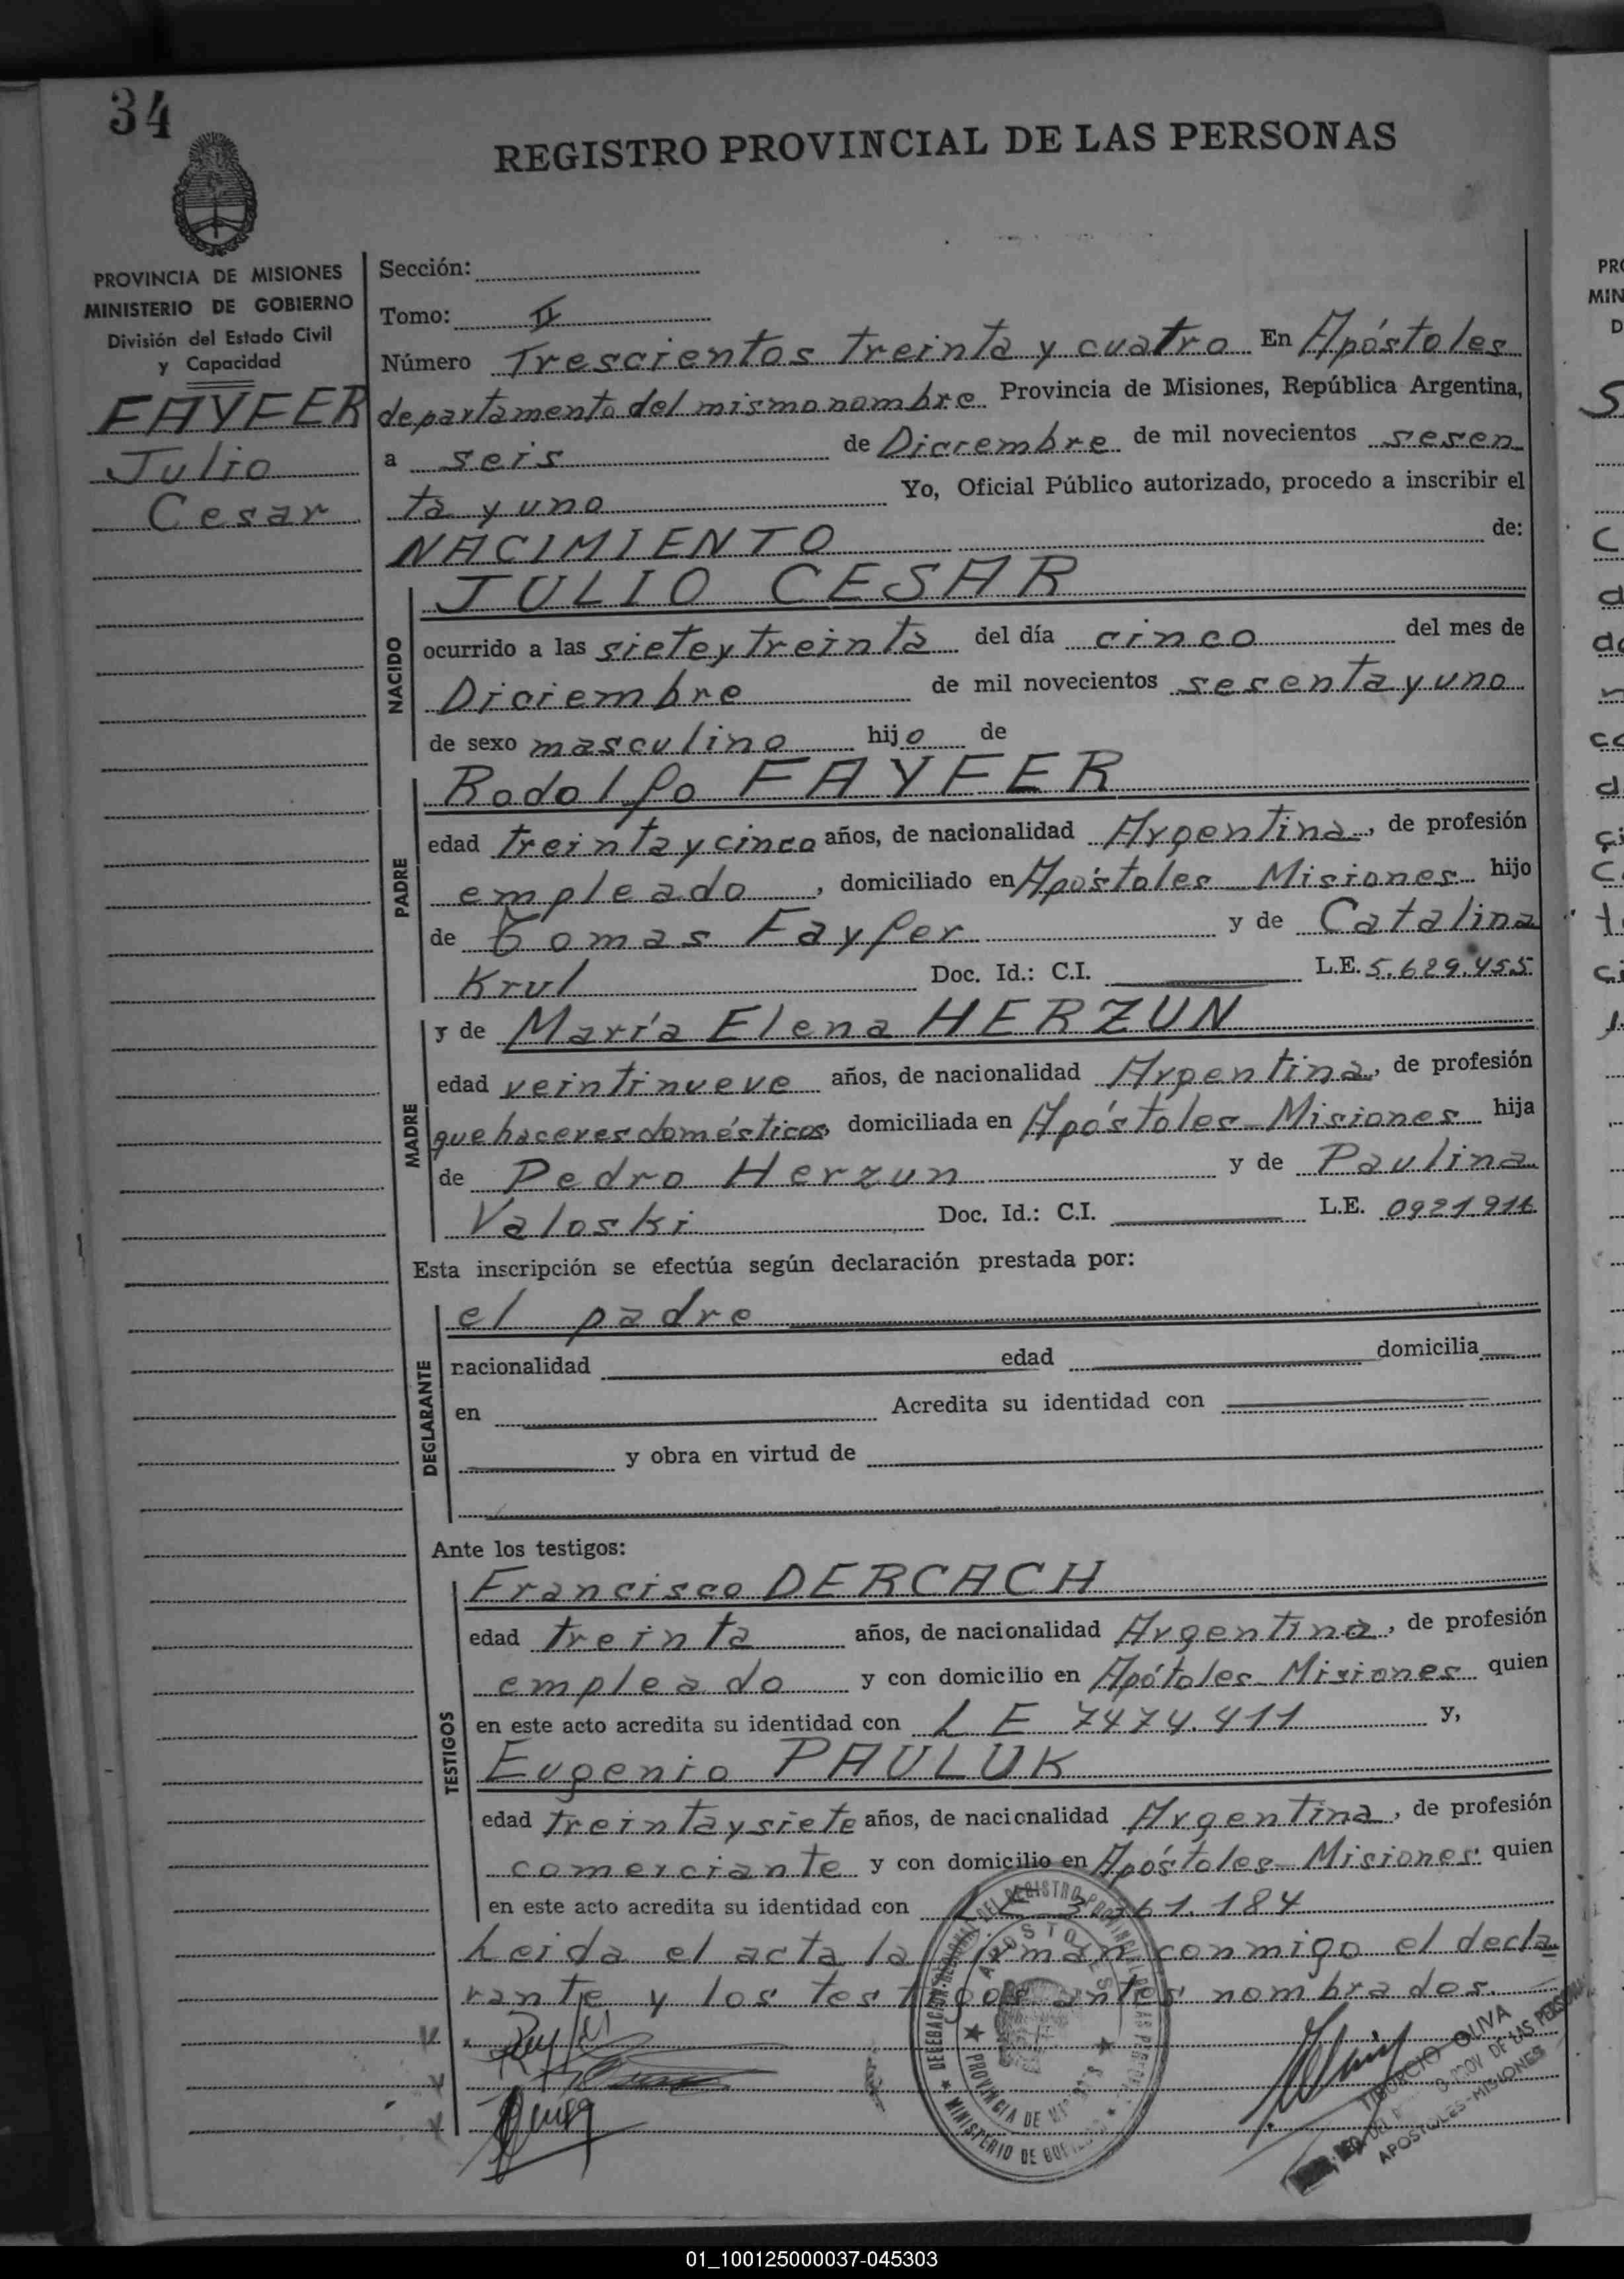 34
REGISTRO PROVINCIAL DE LAS PERSONAS
PROVINCIA DE MISIONES
MINISTERIO DE GOBIERNO
División del Estado Civil
y Capacidad
FAYFER
Julio
Cesar
Sección:
Tomo: II
Número Trescientos treinta y cuatro En Apóstoles
departamento del mismo nombre Provincia de Misiones, República Argentina,
a seis de Diciembre de mil novecientos sesen
ta y uno Yo, Oficial Público autorizado, procedo a inscribir el
NACIMIENTO de:
NACIDO
JULIO CESAR
ocurrido a las siete y treinta del día cinco del mes de
Diciembre de mil novecientos sesenta y uno
de sexo masculino hijo de
PADRE
Rodolfo FAYFER
edad treinta y cinco años, de nacionalidad Argentina, de profesión
empleado, domiciliado en Apóstoles Misiones hijo
de Tomas Fayfer y de Catalina
Krul Doc. Id.: C.I. L.E. 5.629.455
MADRE
y de María Elena HERZUN
edad veintinueve años, de nacionalidad Argentina, de profesión
quehaceres domésticos, domiciliada en Apóstoles-Misiones hija
de Pedro Herzun y de Paulina
Valoski Doc. Id.: C.I. L.E. 0921.916
Esta inscripción se efectúa según declaración prestada por:
DECLARANTE
el padre
nacionalidad edad domicilia
en Acredita su identidad con
y obra en virtud de
Ante los testigos:
TESTIGOS
Francisco DERCACH
edad treinta años, de nacionalidad Argentina, de profesión
empleado y con domicilio en Apótoles-Misiones quien
en este acto acredita su identidad con L E 7474.411 y,
Eugenio PAULUK
edad treinta y siete años, de nacionalidad Argentina, de profesión
comerciante y con domicilio en Apóstoles-Misiones quien
en este acto acredita su identidad con L E 61.184
Leida el acta la firman conmigo el decla
rante y los testigos antes nombrados.
DELEGACION REGIONAL DEL REGISTRO PROVINCIAL DE LAS PERSONAS
APOSTOLES
PROVINCIA DE MISIONES
MINISTERIO DE GOBIERNO
TIBORCIO OLIVA
PROV. DE LAS PERSONAS
APOSTOLES-MISIONES
01_100125000037-045303